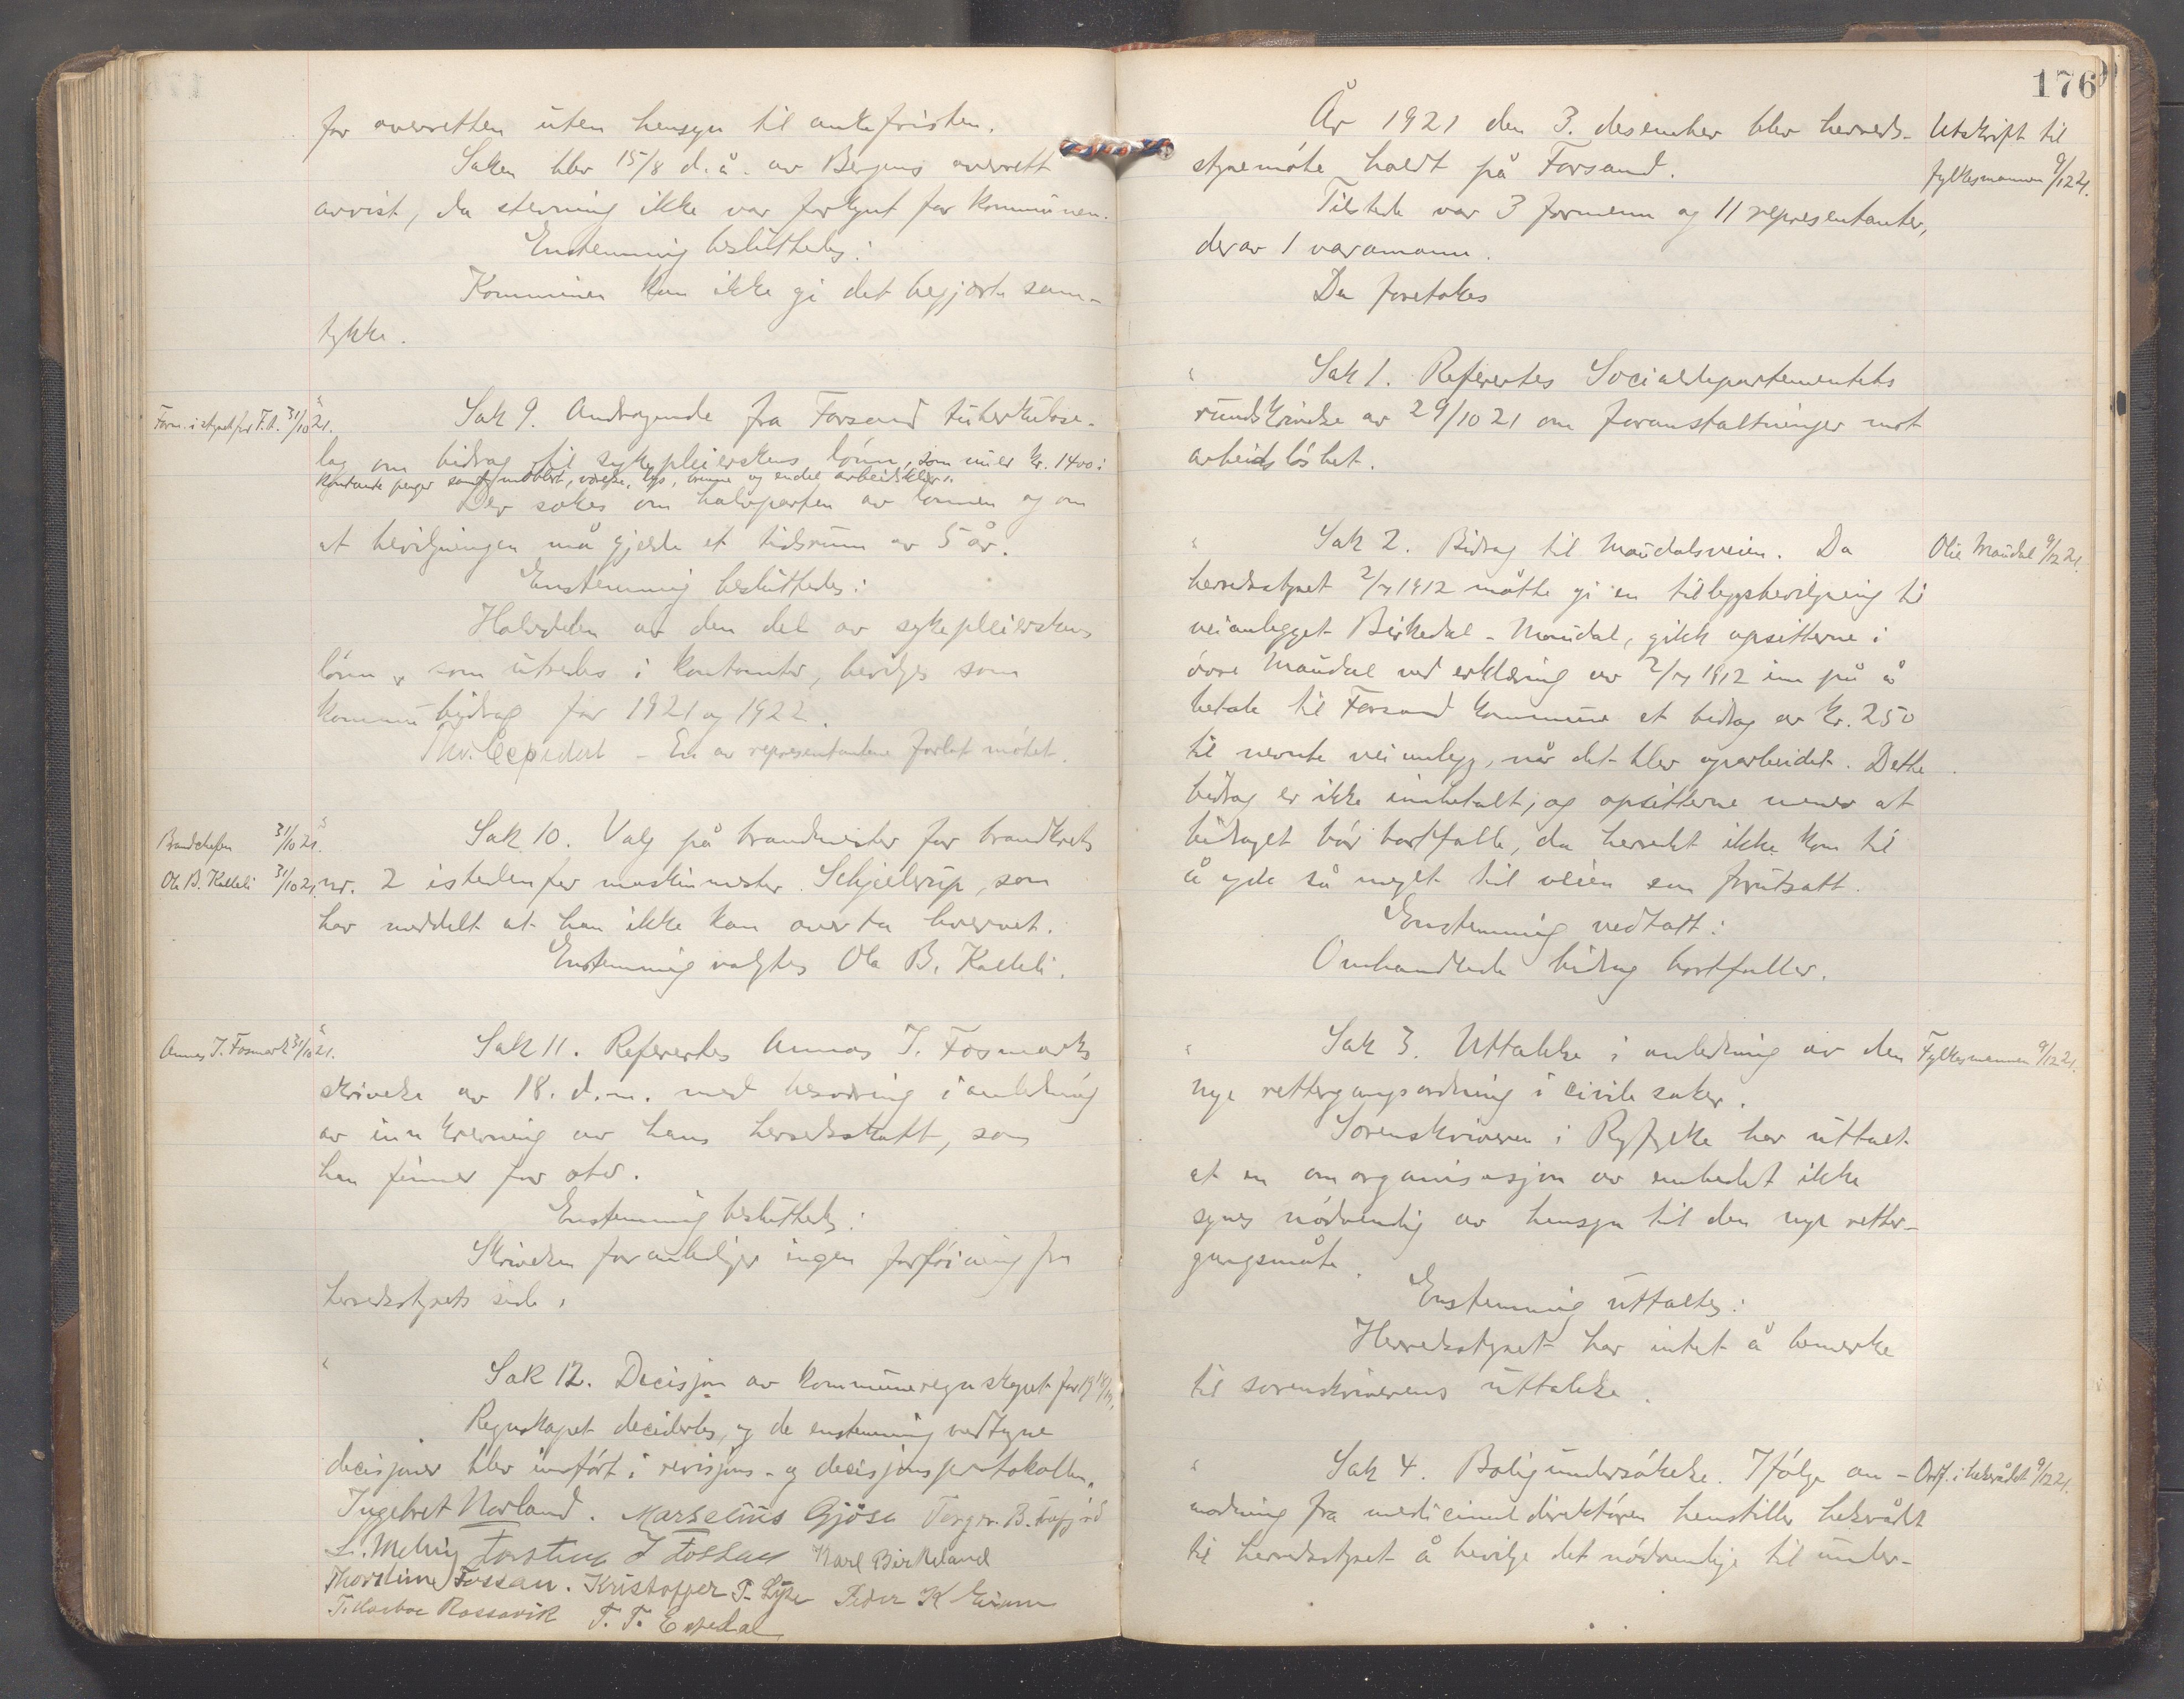 for overretten uten hensyn til ankefristen.
Saken blev 15/8 d.å. av Bergens overrett
avvist, da stevning ikke var forkynt for kommunen.
Enstemmig besluttedes:
Kommunen kan ikke gi det begjærte sam-
tykke.
Form. i styret for F.t. 31/10 21.
Sak 9. Andragende fra Forsand tuberkulose-
lag om bidrag til sykepleierskens lönn, som nu er kr. 1400 i
kontante penger samt möblert, værelse, lys, brenne og endel arbeidsklær.
Der sökes om halvparten av lönnen og om
at bevilgningen må gjelde et tidsrum av 5 år.
Enstemmig besluttedes:
Halvdelen av den del av sykepleierskens
lönn, som utredes i kontanter, bevilges som
kommunebidrag for 1921 og 1922.
Thv. Espedal – En av representantene forlot mötet.
Brandchefen 31/10 21.
Ola B. Kalleli 31/10 21.
Sak 10. Valg på brandmester for brandkrets
nr. 2 istedenfor maskinmester Schjelderup, som
har meddelt at han ikke kan overta hvervet.
Enstemmig valgtes Ola B. Kalleli.
Annas J. Fosmark 31/10 21.
Sak 11. Refertes Annas J. Fosmarks
skrivelse av 18. d.m. med besværing i anledning
av innkrevning av hans herredsskatt, som
han finner for stor.
Enstemmig besluttedes:
Skrivelsen foranlediger ingen forföining fra
herredsstyrets side.
Sak 12. Decisjon av kommuneregnskapet for 1918/19.
Regnskapet deciderdes, og de enstemmig vedtagne
decisjoner blev innfört i revisjons- og decisjonsprotokollen.
Ingebret Norland. Marselius Gjösa Torger B.
L. Meling Torstein J Fossan Karl Birkeland
Thorstine Fossan. Kristoffer T. Lyse Peder K Eiane
Rossavik T. T. Espedal
176
År 1921 den 3. desember blev herreds-
styremöte holdt på Forsand.
Utskrift til
fylkesmannen 9/12 21.
Tilstede var 3 formenn og 11 representanter,
derav 1 varamann.
Da foretokes
Sak 1. Refertes Socialdepartementets
rundskrivelse av 29/10 21 om foranstaltninger mot
arbeidslöshet.
Sak 2. Bidrag til Maudalsveien. Da
Olie Maudal 9/12 21.
herredsstyret 2/7 1912 måtte gi en tilleggsbevilgning til
veianlegget Birkedal - Maudal, gikk opsitterne i
övre Maudal ved erklæring av 2/7 1912 inn på å
betale til Forsand kommune et bidrag av kr. 250
til nevnte veianlegg, når det blev oparbeidet. Dette
bidrag er ikke innbetalt, og opsitterne mener at
bidraget bör bortfalle, da herredet ikke kom til
å yde så meget til veien som forutsatt.
Enstemmig vedtatt:
Omhandlede bidrag bortfaller.
Sak 3. Uttalelse i anledning av den
Fylkesmannen 9/12 21.
nye rettergangsordning i civile saker.
Sorenskriveren i Ryfylke har uttalt
at en omorganisasjon av embedet ikke
synes nödvendig av hensyn til den nye retter-
gangsmåte.
Enstemmig uttaltes:
Herredsstyret har intet å bemerke
til sorenskriverens uttalelse.
Sak 4. Boligundersökelse. Ifölge an-
Ordf. i helserådet 9/12 21.
modning fra medicinaldirektören henstiller helserådet
til herredsstyret å bevilge det nödvendige til under-